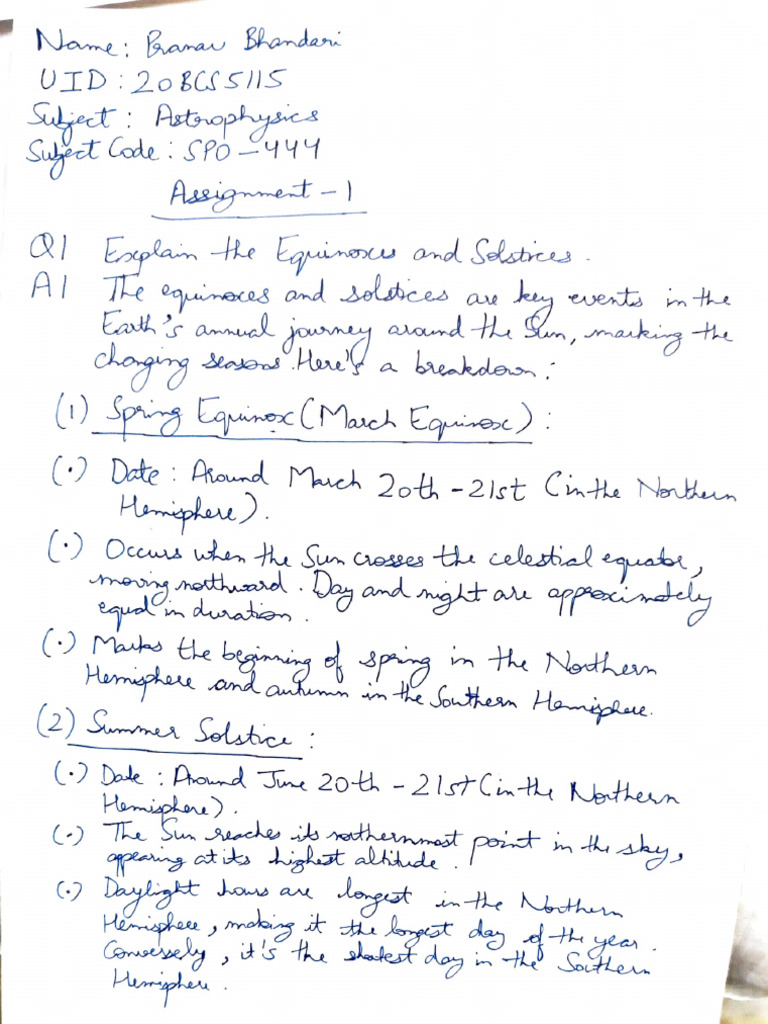 Name: Pranav Bhandari
UID: 20BCS5115
Subject: Astrophysics
Subject Code: SPO-444
Assignment-1
Q1 Explain the Equinoxes and Solstices.
A1 The equinoxes and solstices are key events in the
Earth's annual journey around the Sun, marking the
changing seasons. Here's a breakdown:
(1) Spring Equinox (March Equinox):
(.) Date: Around March 20th-21st (in the Northern
Hemisphere).
(.) Occurs when the Sun crosses the celestial equator,
moving northward. Day and night are approximately
equal in duration.
(.) Marks the beginning of spring in the Northern
Hemisphere and autumn in the Southern Hemisphere.
(2) Summer Solstice:
(.) Date: Around June 20th-21st (in the Northern
Hemisphere).
(.) The Sun reaches its northernmost point in the sky,
appearing at its highest altitude.
(.) Daylight hours are longest in the Northern
Hemisphere, making it the longest day of the year.
Conversely, it's the shortest day in the Southern
Hemisphere.